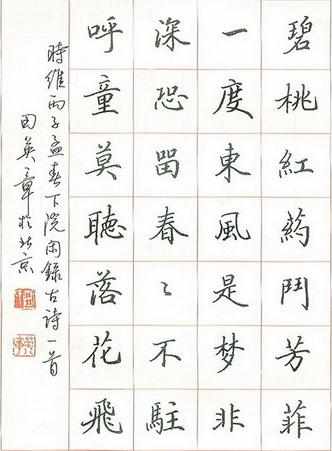 碧桃紅药鬥芳菲
一度東風是梦非
深恐留春〻不駐
呼童莫聽落花飛
時維丙子孟春下浣闲錄古詩一首
田英章於北京